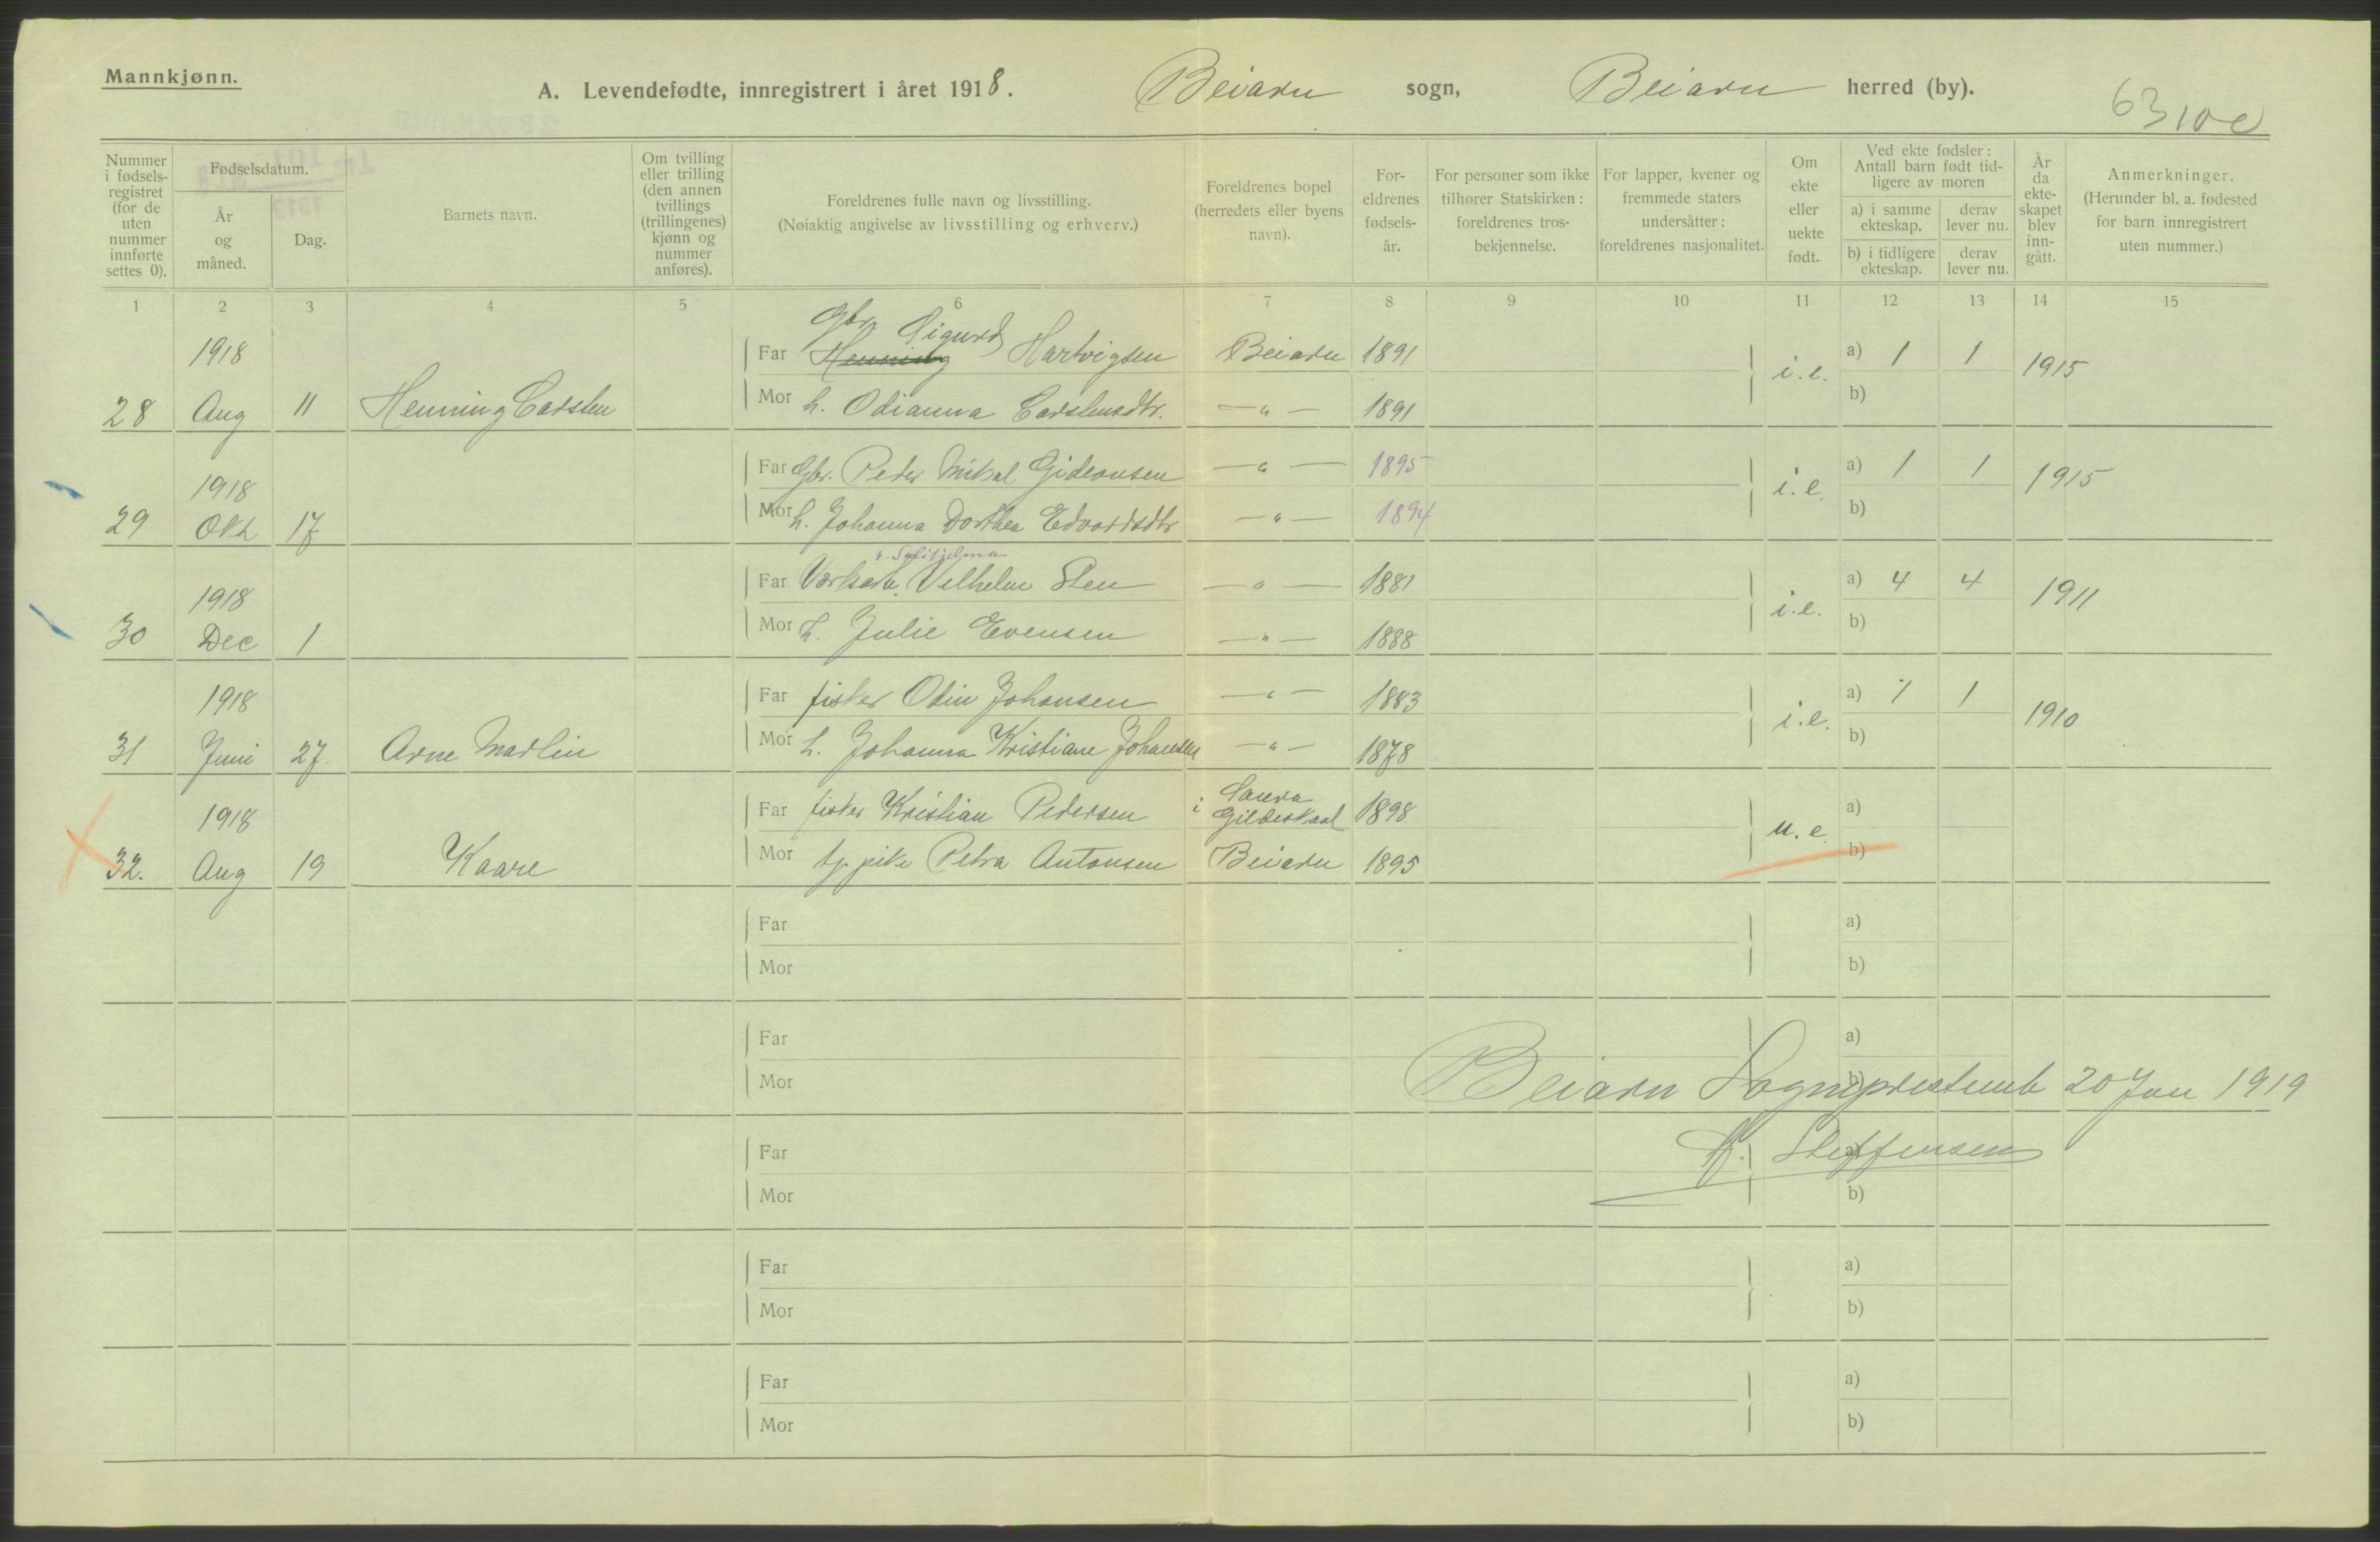 Mannkjønn.
A. Levendefødte, innregistrert i året 1918. Beiarn sogn, Beiarn herred (by).
6310c
Nummer i fødsels-registret (for de uten nummer innførte settes 0).
Fødselsdatum.
År og måned.
Dag.
Barnets navn.
Om tvilling eller trilling (den annen tvillings (trillingenes) kjønn og nummer anføres).
Foreldrenes fulle navn og livsstilling.
(Nøiaktig angivelse av livsstilling og erhverv.)
Foreldrenes bopel (herredets eller byens navn).
For-eldrenes fødsels-år.
For personer som ikke tilhører Statskirken: foreldrenes tros-bekjennelse.
For lapper, kvener og fremmede staters undersåtter: foreldrenes nasjonalitet.
Om ekte eller uekte født.
Ved ekte fødsler: Antall barn født tid-ligere av moren
a) i samme ekteskap. derav lever nu.
b) i tidligere ekteskap. derav lever nu.
År da ekte-skapet blev inn-gått.
Anmerkninger.
(Herunder bl. a. fødested for barn innregistrert uten nummer.)
1 2 3 4 5 6 7 8 9 10 11 12 13 14 15
Gbr. Sigurd
1918 Far Henning Hartvigsen Beiarn 1891 i.e. a) 1 1 1915
28 Aug 11 Henning Carsten Mor h. Odianna Carstensdtr. — " — 1891 b)
1918 Far Gbr. Peder Mikal Gideonsen — " — 1895 i.e. a) 1 1 1915
29 Okt 17 Mor h. Johanna Dorthea Edvardsdtr — " — 1894 b)
v. Sulitjelma
1918 Far Vilhelm Sten — " — 1881 i.e. a) 4 4 1911
30 Dec 1 Mor h. Julie Evensen — " — 1888 b)
1918 Far fisker Odin Johansen — " — 1883 i.e. a) 1 1 1910
31 Juni 27. Arne Marlin Mor h. Johanna Kristiane Johansen — " — 1878 b)
1918 Far fisker Kristian Pedersen i Gildeskaal 1898 u.e. a)
32. Aug 19 Kaare Mor tj. pike Petra Antonsen Beiarn 1895 b)
Far a)
Mor b)
Far a)
Mor b)
Beiarn Sogneprestemb 20 Jan 1919
Far a)
Steffensen
Mor b)
Far a)
Mor b)
Far a)
Mor b)